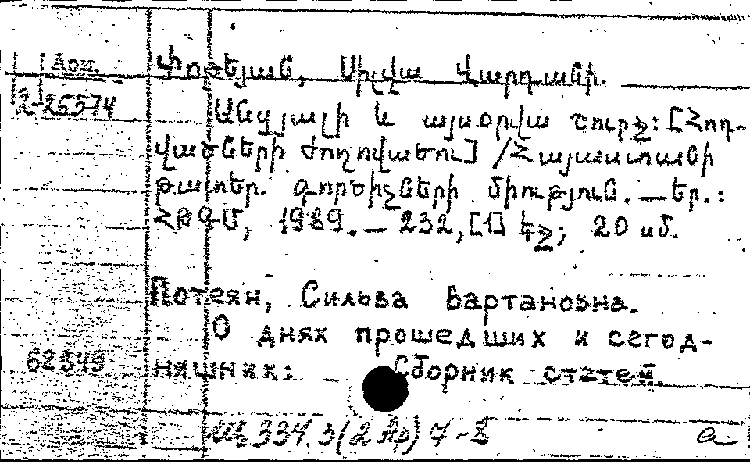 Арм. Փոթեյան, Սիլվա Վարդանի.
2-25574 Անցյալի և այսօրվա շուրջ: [Հոդ-
վածների ժողովածու] /Հայաստանի
թատեր. գործիչների միություն. — Եր.:
ՀԹԳՄ, 1989. — 232, [1] էջ; 20 սմ.
Потеян, Сильва Вартановна.
О днях прошедших и сегод-
62549 няшних: Сборник статей.
Щ 334.3(2Ар) 7-8 а